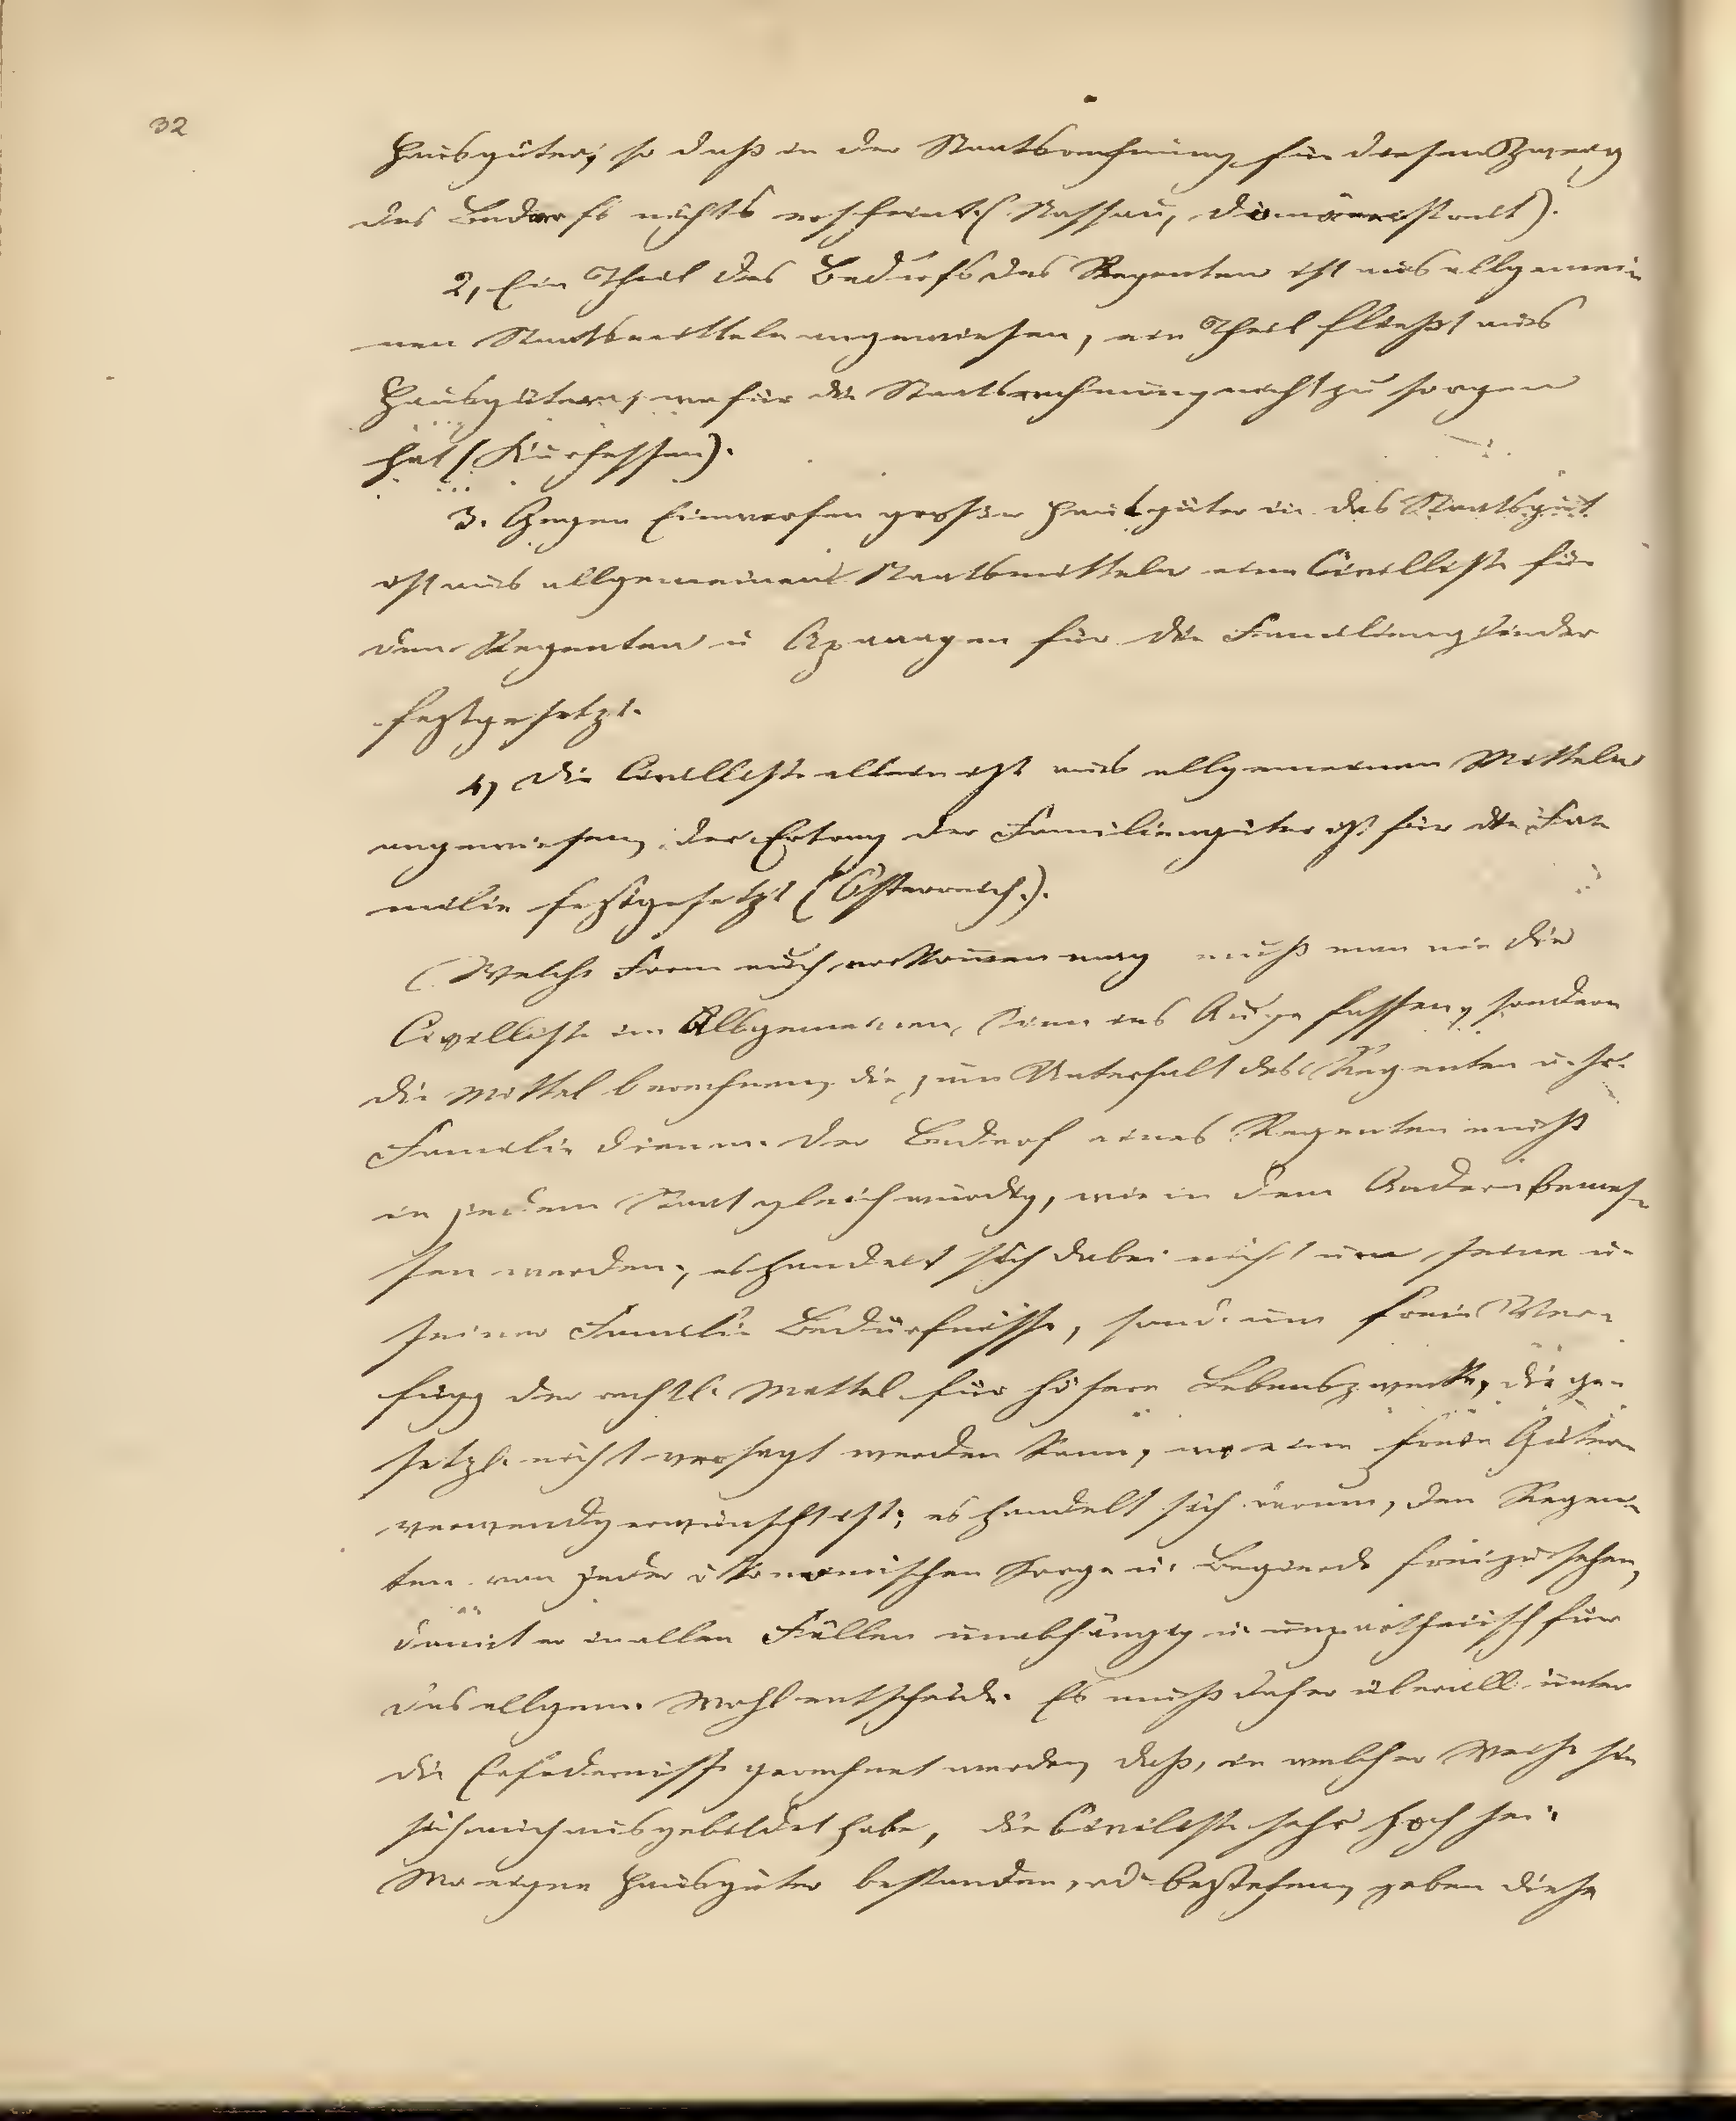 32
Hausgüter, so daß in der Staatsrechnung für diesen Zweig
des Bedarfs nichts erscheint (Nassau, Domänenstreit).
2, Ein Theil des Bedarfs des Regenten ist aus allgemei-
nen Staatsmitteln angewiesen, ein Theil fließt aus
Hausgütern, wofür die Staatsrechnung nicht zu sorgen
hat (Kurhessen).
3. Gegen Einwerfen großer Hausgüter in das Staatsgut
ist aus allgemeinen Staatsmitteln eine Civilliste für
den Regenten u Apanagen für die Familienglieder
festgesetzt.
4) Die Civilliste allein ist aus allgemeinen Mitteln
angewiesen, der Ertrag der Familiengüter ist für die Fa-
milie festgesetzt (Österreich.).
(Welche Form auch vorkommen mag muß man nie die
Civilliste im Allgemeinen, Sinn ins Auge fassen, sondern
die Mittel berechnen, die zum Unterhalt des Regenten u. sr.
Familie dienen. Der Bedarf eines Regenten muß
in jedem Staat gleich würdig, wie in dem Andern bemes-
sen werden, es handelt sich dabei nicht um seine u.
seiner Familie Bedürfnisse, sond. um freie Ver-
függ der rechtl. Mittel für höhere Lebenszwecke, die ge-
setzl. nicht versagt werden kann, wo eine freie Güter-
verwendg erwünscht ist; es handelt sich darum, den Regen-
ten von jeder ökonomischen Sorge u. Begierde frei zu sehen,
damit er in allen Fällen unabhängig u. unpartheiisch für
das allgem. Wohl entscheide. Es muß daher überall unter
die Erfodernisse gerechnet werden, daß, in welcher Weise sie
sich auch ausgebildet habe, die Civilliste sehr hoch sei.
Wo eigne Hausgüter bestanden, od. bestehen, geben diese